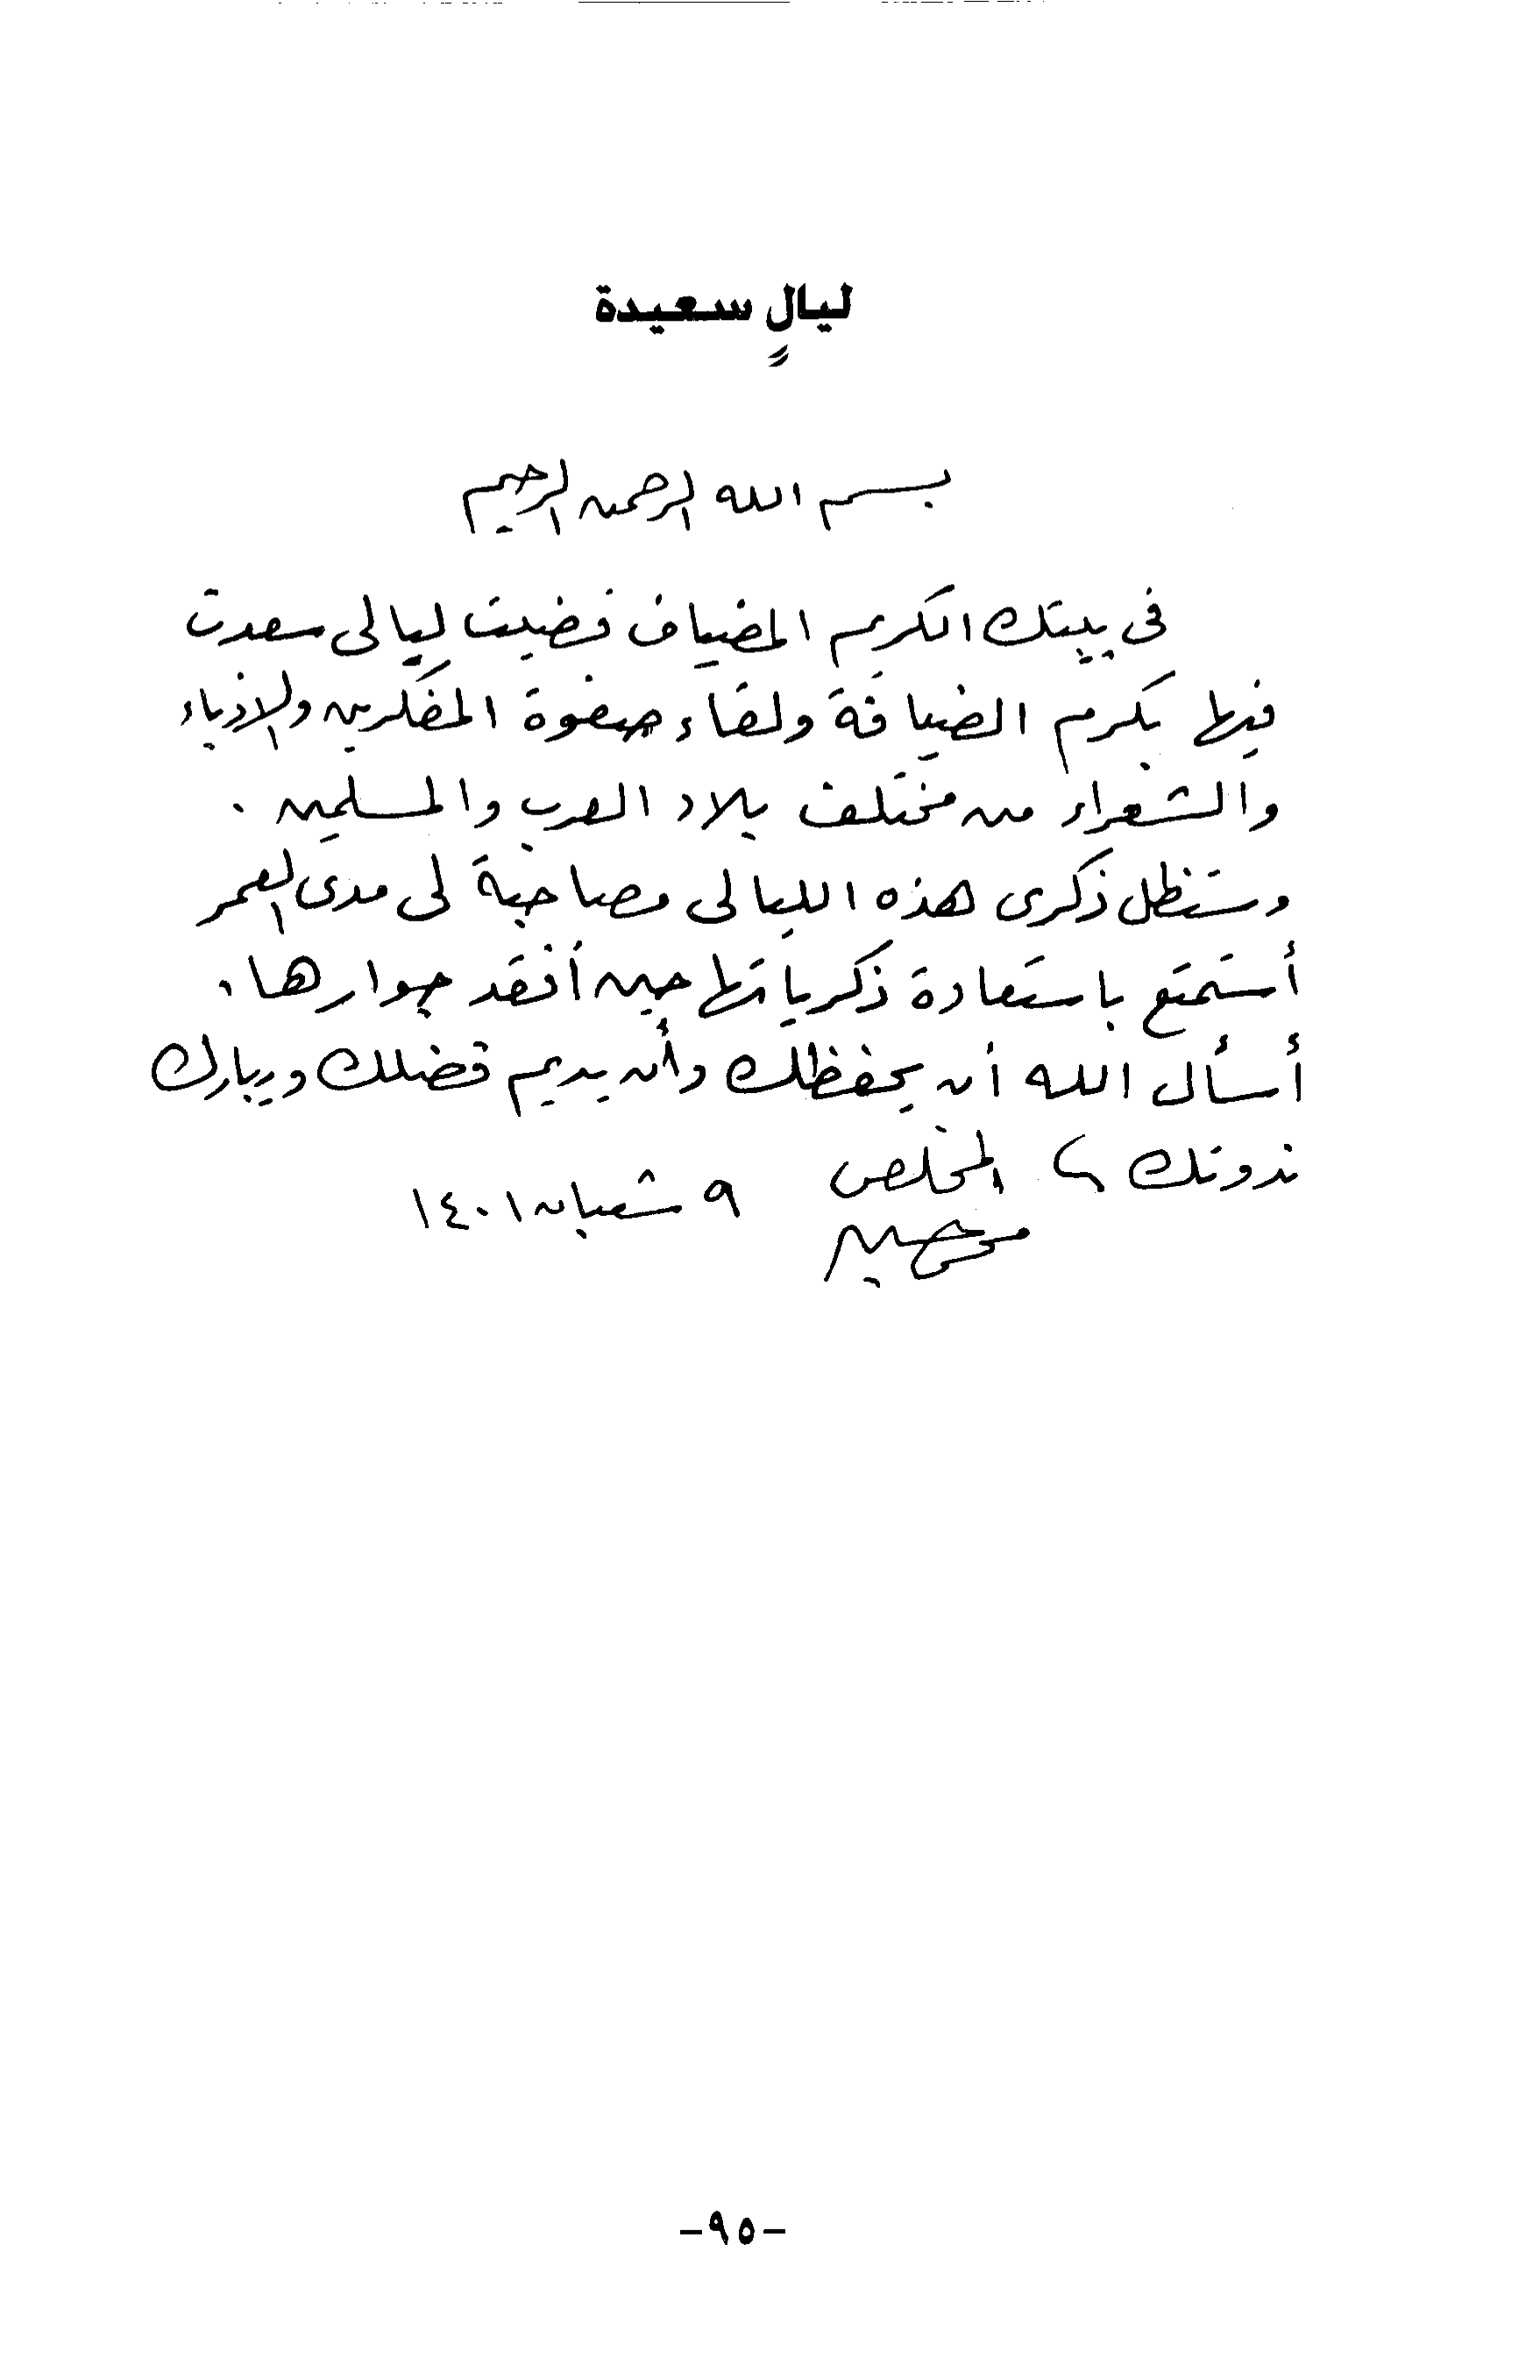 ليالٍ سعيدة
بسم الله الرحمن الرحيم
فى بيتك الكريم المضياف قضيت ليالى سعدت
فيها بكرم الضيافة ولقاء صفوة المفكرين والادباء
والشعراء من مختلف بلاد العرب والمسلمين .
وستظل ذكرى هذه الليالى مصاحبة لى مدى العمر
أستمتع باستعادة ذكرياتها حين أفقد جوارها ،
أسأل الله أن يحفظك وأن يديم فضلك ويبارك
ندوتك المخلص
٩ شعبان ١٤٠١
-٩٥-